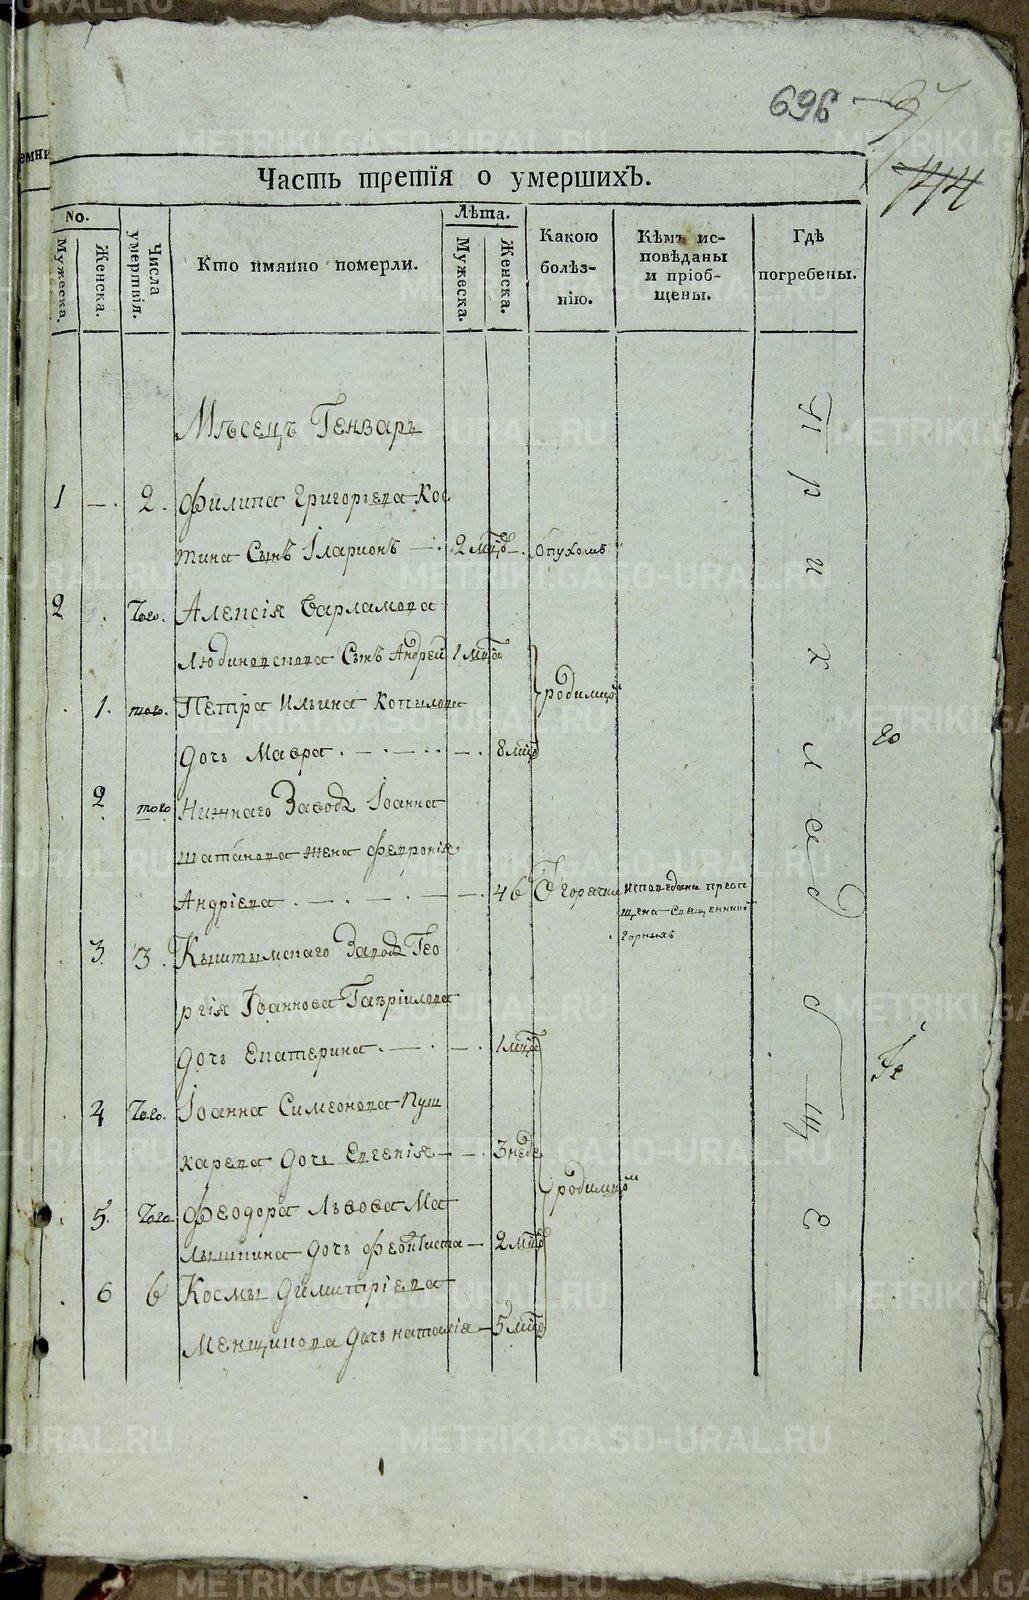 696
97
744
Часть третія о умершихЪ.
No.
Мужеска.
Женска.
Числа умертвія.
Кто имянно померли.
Лѣта.
Мужеска.
Женска.
Какою болѣз-нію.
Кѣмъ ис-повѣданы и пріоб-щены.
Гдѣ погребены.
Мѣсецъ Генварь
1 — . 2. Филипа Григорьева Кос
тина Сынъ Іларионъ — . 2 мцов — . Опухолью
2 . Того. Алексія Варламова
Людиновскова Сынъ Андрей 1 мца
. 1. того. Петра Ильина Копылова
родимцом
Дочь Мавра . — . — . . — . 8 мцов
2 того Нижнаго Завода Іоанна
Шатанова жена Феврония
Андріева . — . — . — . 46 Горячки исповедана преоп
щена Священнико
Горных
. 3. 3. Кыштымскаго Завода Гео
ргія Іоаннова Гавріилова
Дочь Екатерина . — . — . 1 мца
. 4 Того. Іоанна Симеонова Пуш
карева Дочь Евгенія — — . 3 неде
. 5. Того Феодора Львова Ма
родимцом
лышкина Дочь Феоктиста — 2 мцов
. 6 6 Космы Димитріева
Менщикова Дочь Наталія — 5 мцов
При кладбище
го
METRIKI.GASO-URAL.RU